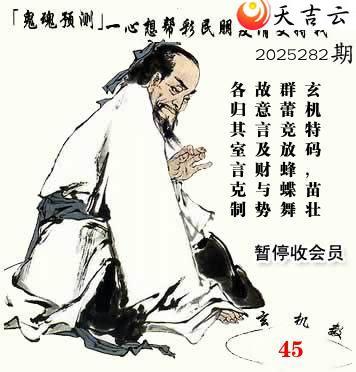 天吉云
2025282期
「鬼魂预测」一心想帮彩民朋友
玄机特码，苗壮
群蕾竞放蜂蝶舞
故意言及财与势
各归其室言克制
暂停收会员
玄机数
45